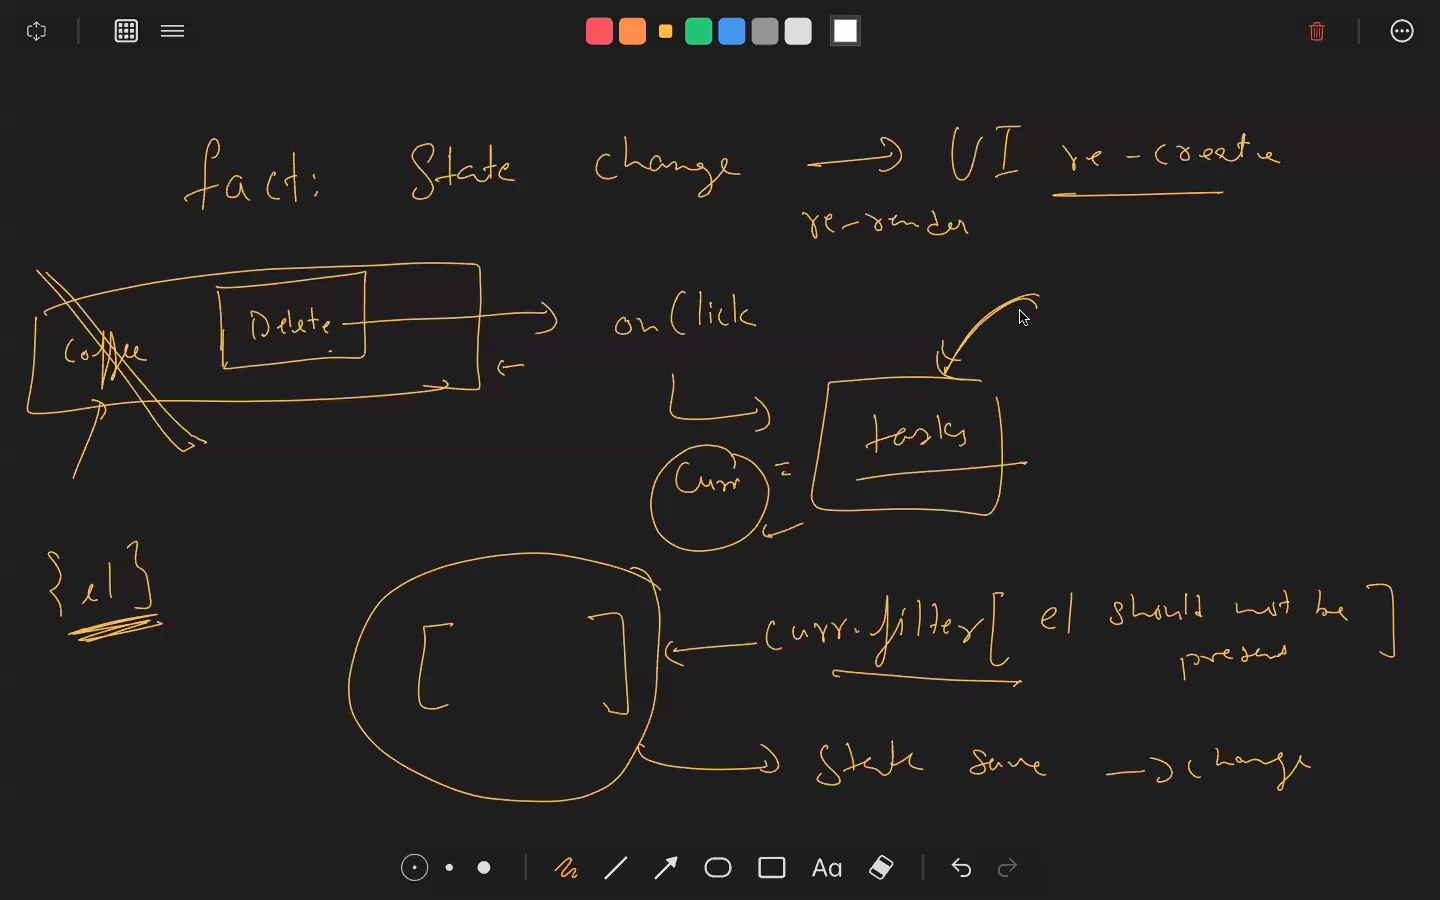 fact: State change → UI re-create
re-render
Coffee
Delete → onClick
tasks
Curr =
{el}
[ ] ← Curr.filter[ el should not be present ]
→ State save → change
Aa